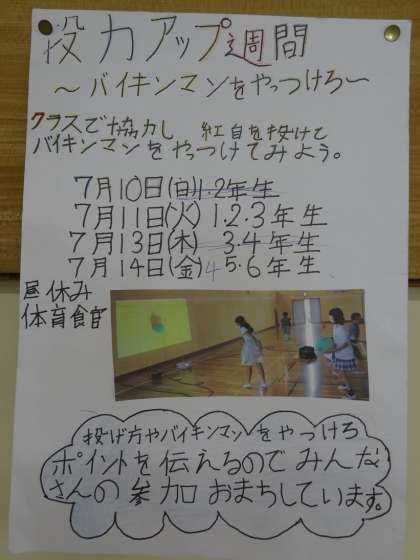 投力アップ週間
～バイキンマンをやっつけろ～
クラスで協力し 紅白を投げて
バイキンマンをやっつけてみよう。
7月10日(月)1.2年生
7月11日(火)1.2.3年生
7月13日(木) 3.4年生
7月14日(金)4 5.6年生
昼休み
体育館
投げ方やバイキンマンをやっつけろ
ポイントを伝えるのでみんな
さんの参加おまちしています。